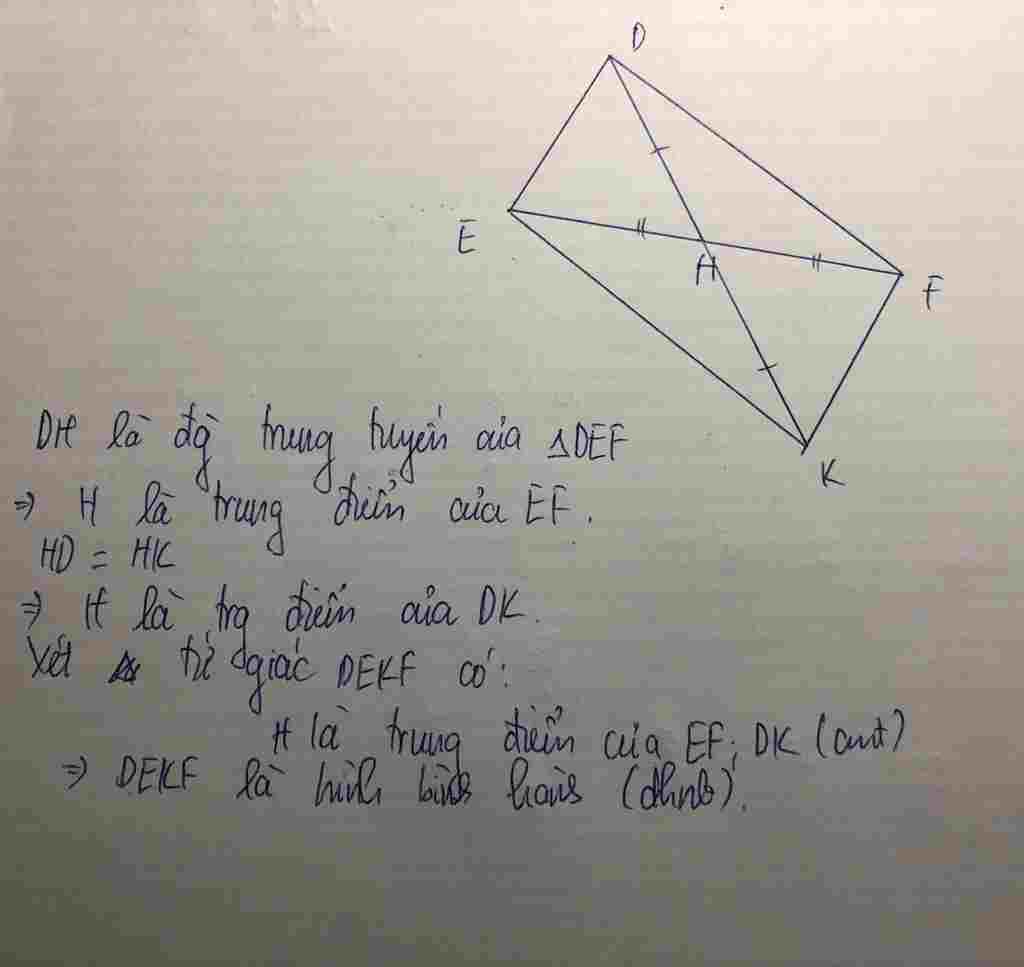 D
E
H
F
K
DH là đg̀ trung tuyến của ΔDEF
⇒ H là trung điểm của EF.
HD = HK
⇒ H là trg điểm của DK.
Xét tứ giác DEKF có:
H là trung điểm của EF; DK (cmt)
⇒ DEKF là hình bình hành (dhnb).